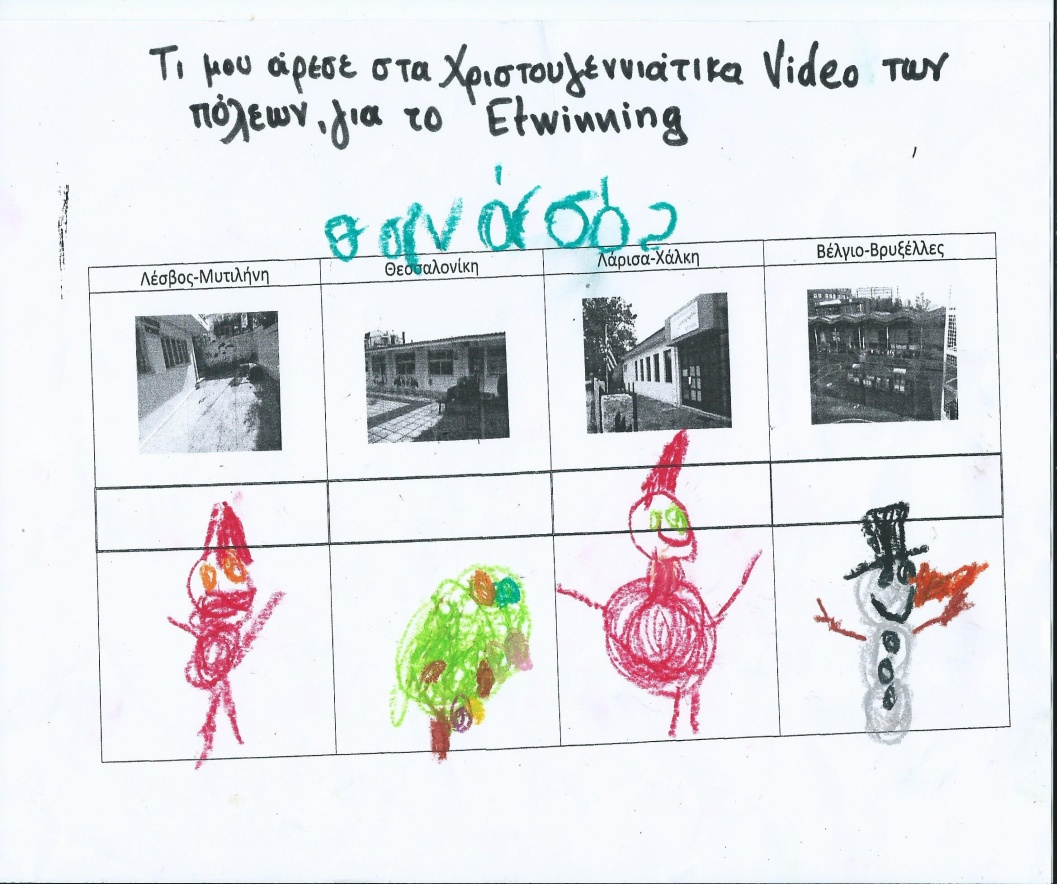 Τι μου άρεσε στα Χριστουγεννιάτικα Video των
πόλεων, για το Etwinning
θανάσης
Λέσβος-Μυτιλήνη
Θεσσαλονίκη
Λάρισα-Χάλκη
Βέλγιο-Βρυξέλλες